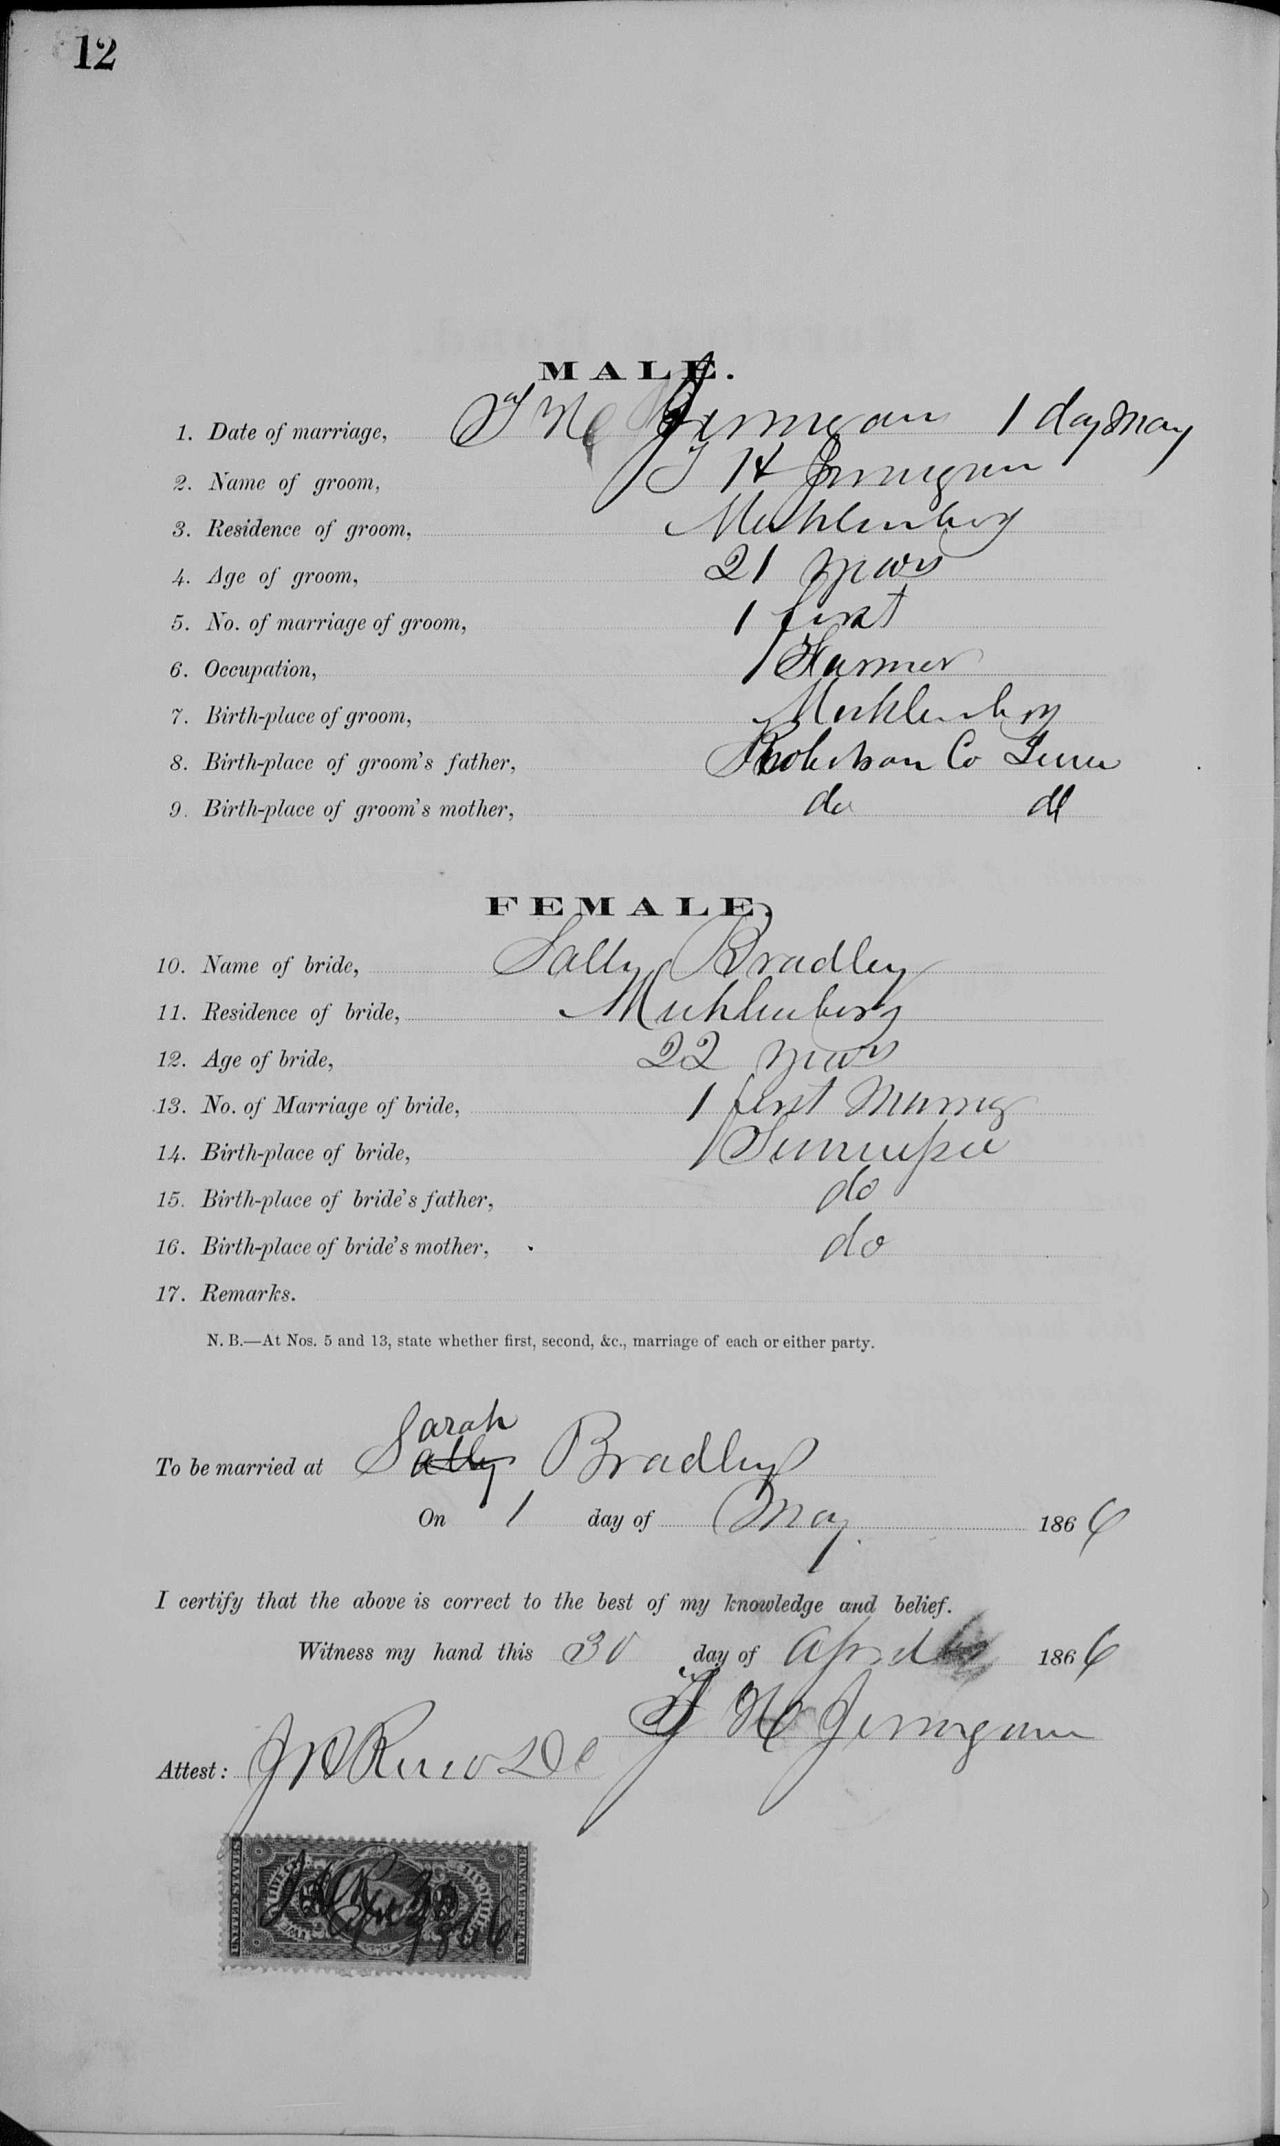 12
MALE.
1. Date of marriage, T H Jernigan 1 day May
2. Name of groom, T H Jernigan
3. Residence of groom, Muhlenberg
4. Age of groom, 21 years
5. No. of marriage of groom, 1 first
6. Occupation, Farmer
7. Birth-place of groom, Muhlenberg
8. Birth-place of groom's father, Robertson Co Tenn
9. Birth-place of groom's mother, do do
FEMALE.
10. Name of bride, Sally Bradley
11. Residence of bride, Muhlenberg
12. Age of bride, 22 years
13. No. of Marriage of bride, 1 first Marrig
14. Birth-place of bride, Tennessee
15. Birth-place of bride's father, do
16. Birth-place of bride's mother, do
17. Remarks.
N. B.—At Nos. 5 and 13, state whether first, second, &c., marriage of each or either party.
Sarah
To be married at Sally Bradleys
On 1 day of May 1866
I certify that the above is correct to the best of my knowledge and belief.
Witness my hand this 30 day of April 1866
T H Jernigan
Attest: J W Reno DC
UNITED STATES
INTER. REVENUE
1866